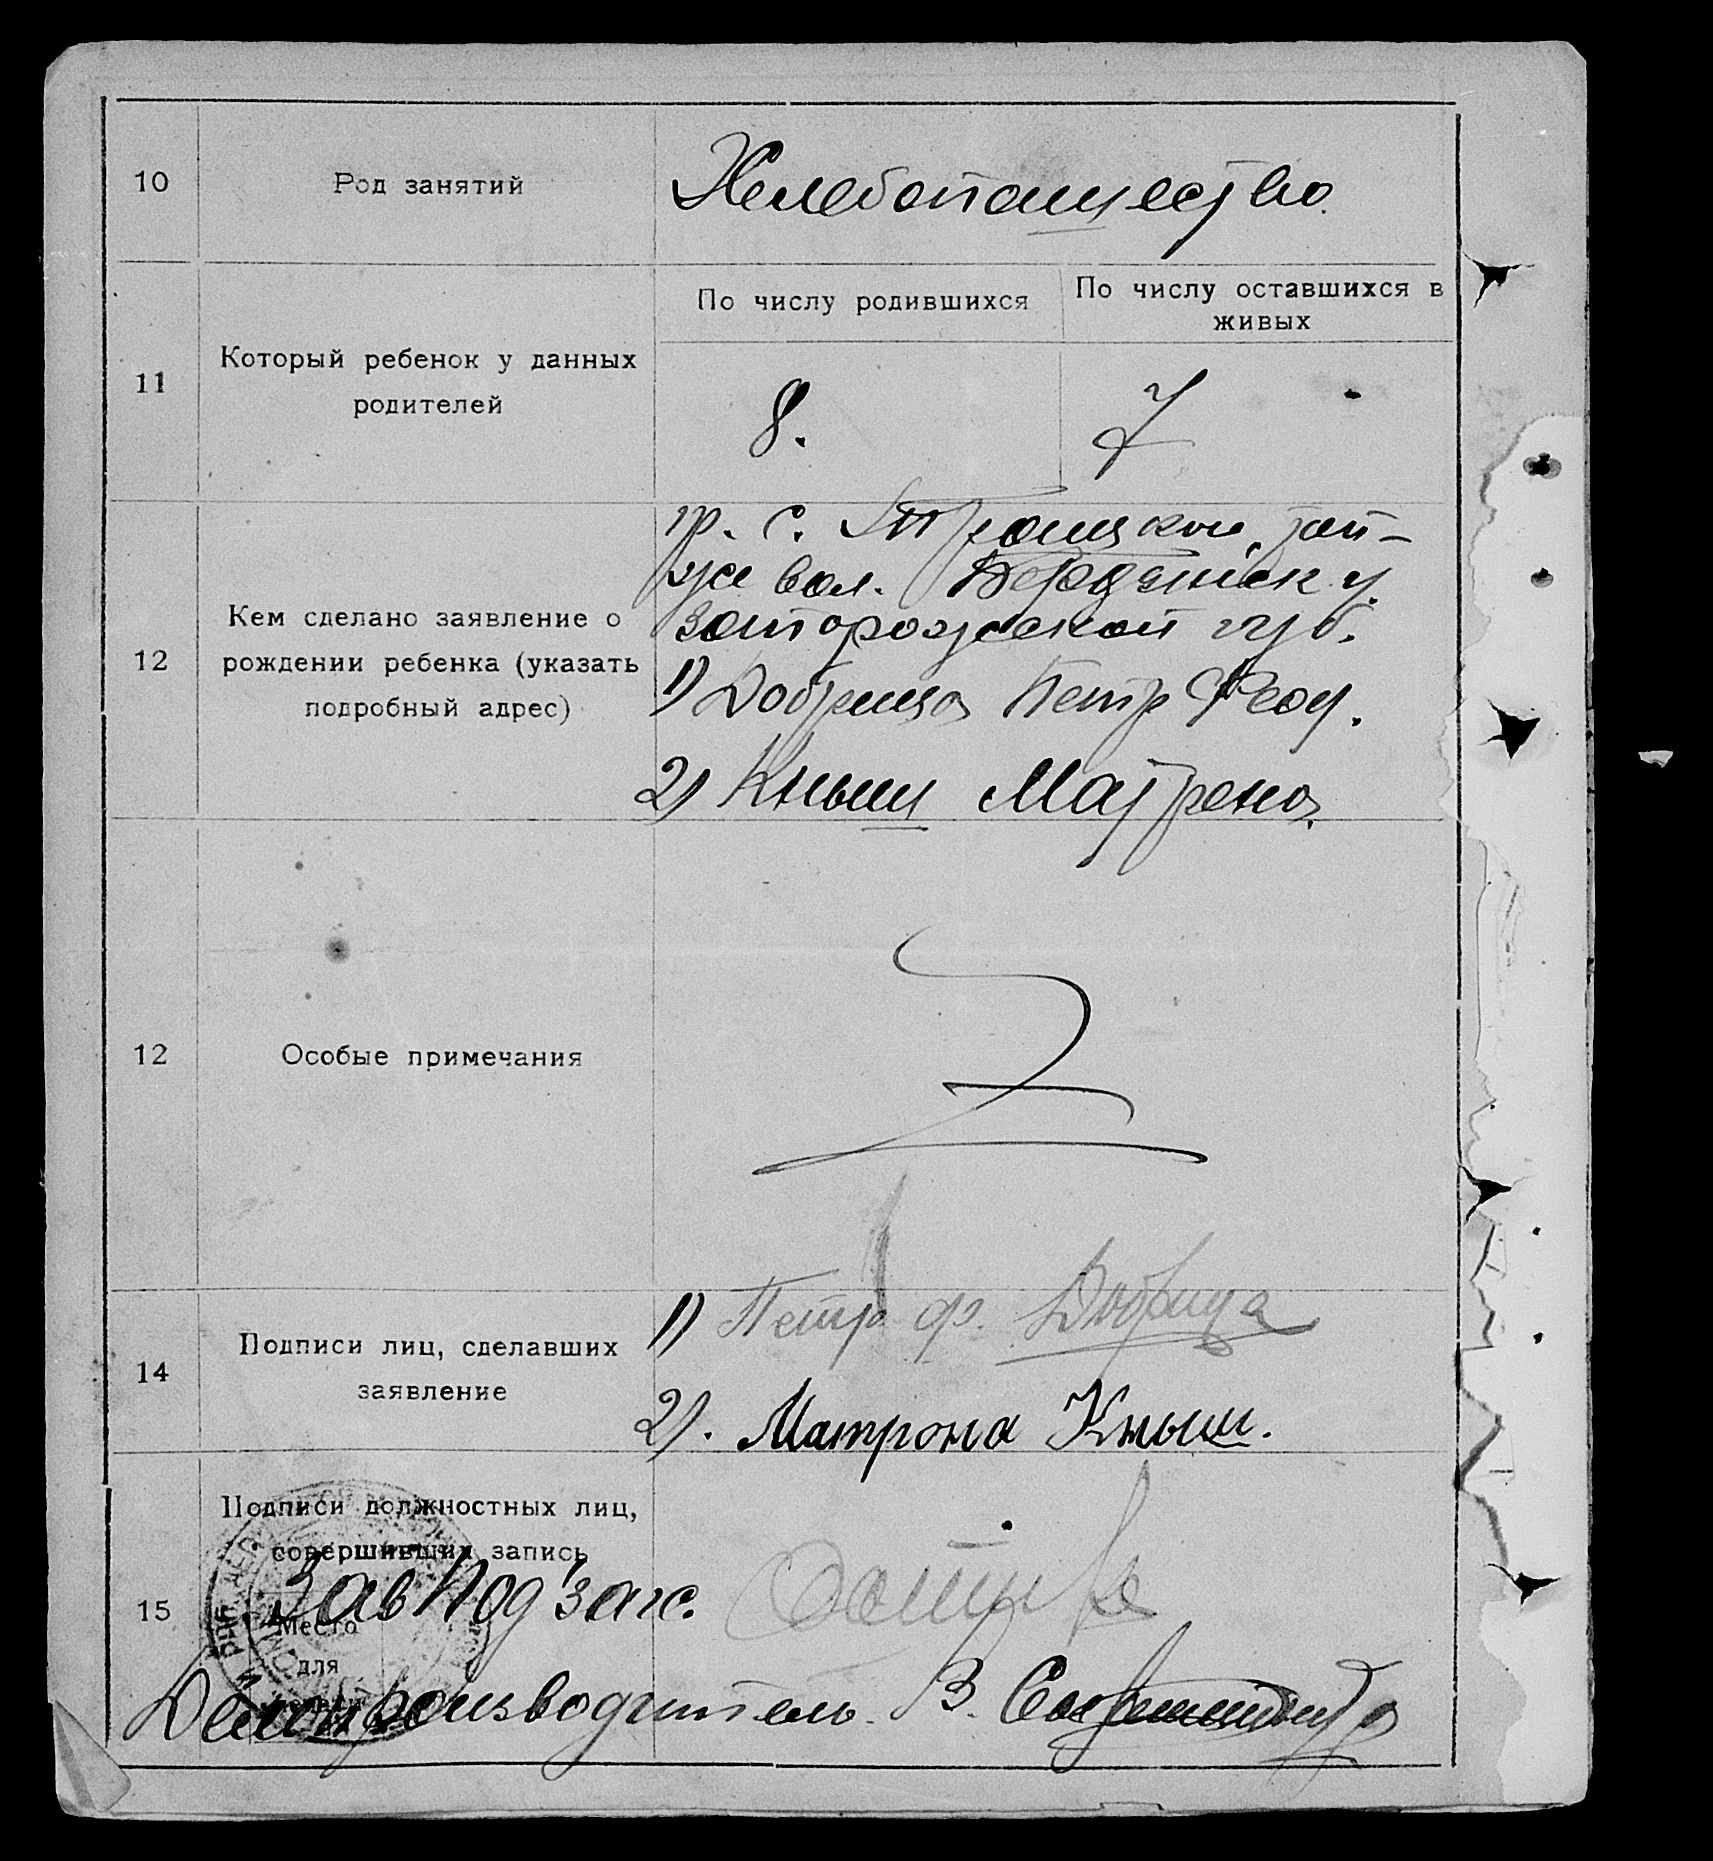 10 Род занятий Хелебопащество.
По числу родившихся По числу оставшихся в
живых
Который ребенок у данных
11
родителей
8. 7
гр. с. Троицкое, той-
же вол. Бердянск у.
Запорожской губ.
Кем сделано заявление о
12 рождении ребенка (указать
подробный адрес)
1) Добрица Петр Феод.
2) Кныш Матрена
12 Особые примечания
1) Петр ф. Добрица
Подписи лиц, сделавших
14
заявление
2). Матрона Кныш.
Подписи должностных лиц,
совершивших запись
Зав Под'загс.
15
Место
для
Делопроизводитель В.